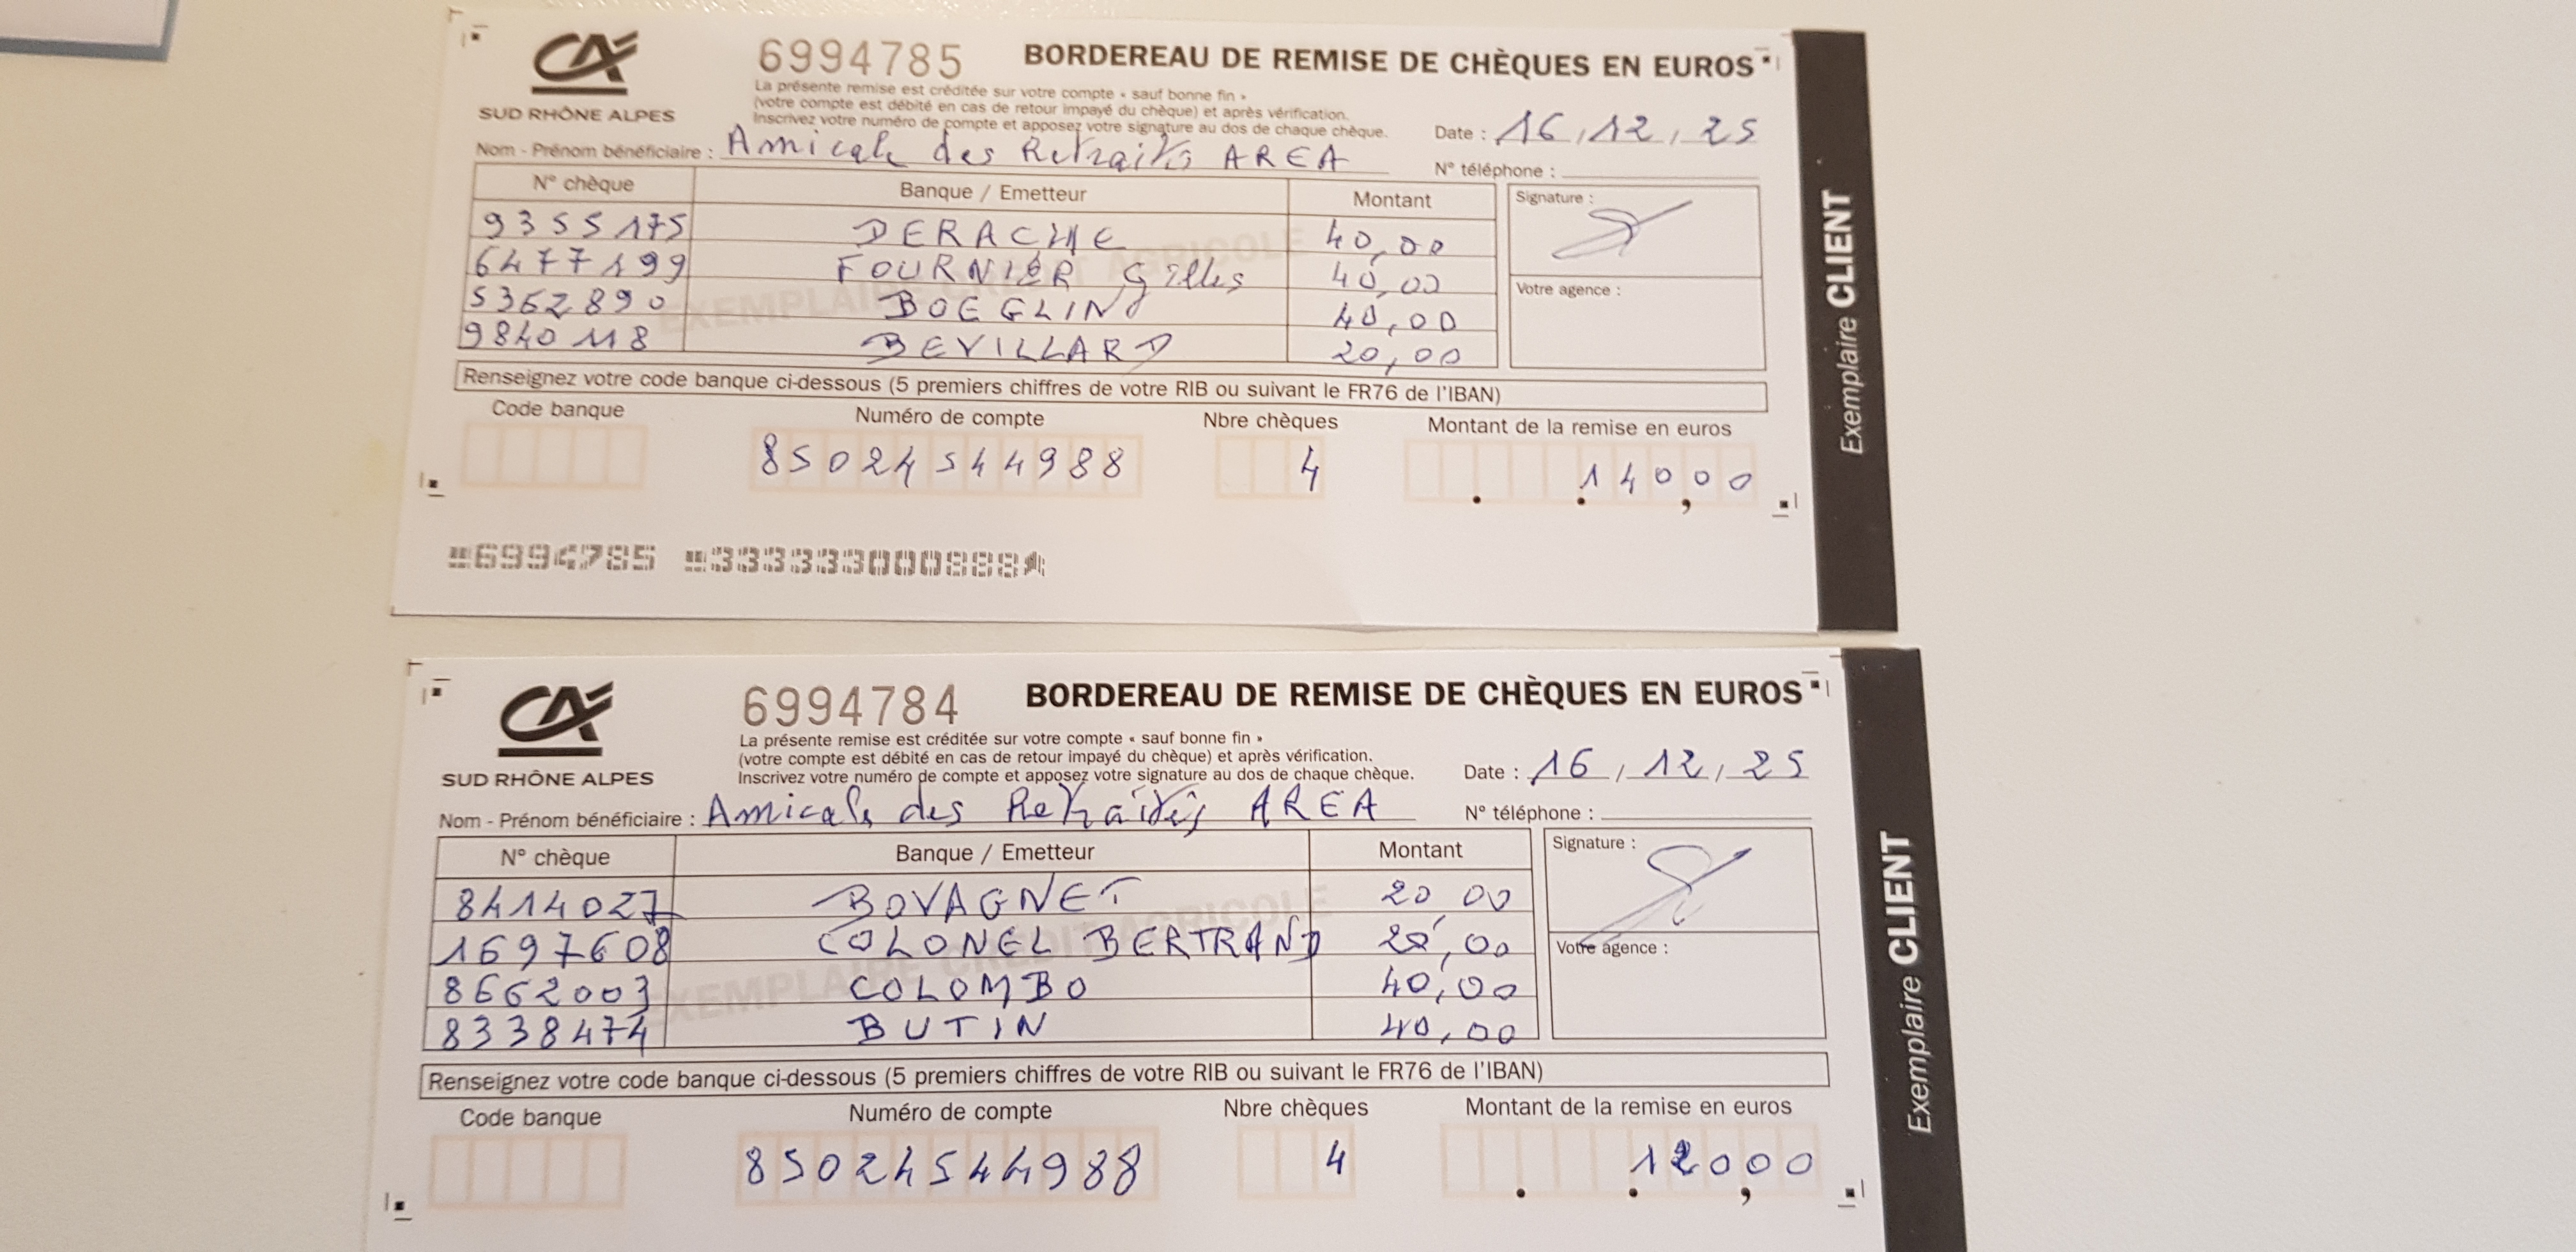 CA
SUD RHÔNE ALPES
6994785
BORDEREAU DE REMISE DE CHÈQUES EN EUROS
La présente remise est créditée sur votre compte « sauf bonne fin »
(votre compte est débité en cas de retour impayé du chèque) et après vérification.
Inscrivez votre numéro de compte et apposez votre signature au dos de chaque chèque.
Date : 16 / 12 / 25
Nom - Prénom bénéficiaire : Amicale des Retraités AREA
N° téléphone :
N° chèque Banque / Emetteur Montant
9355175 DERACHE 40,00
6477199 FOURNIER Gilles 40,00
5362890 BOEGLIN 40,00
9840118 BEVILLARD 20,00
Signature :
Votre agence :
EXEMPLAIRE CRÉDIT AGRICOLE
Renseignez votre code banque ci-dessous (5 premiers chiffres de votre RIB ou suivant le FR76 de l'IBAN)
Code banque Numéro de compte Nbre chèques Montant de la remise en euros
85024544988 4 140,00
6994785 333333000888
Exemplaire CLIENT
CA
SUD RHÔNE ALPES
6994784
BORDEREAU DE REMISE DE CHÈQUES EN EUROS
La présente remise est créditée sur votre compte « sauf bonne fin »
(votre compte est débité en cas de retour impayé du chèque) et après vérification.
Inscrivez votre numéro de compte et apposez votre signature au dos de chaque chèque.
Date : 16 / 12 / 25
Nom - Prénom bénéficiaire : Amicale des Retraités AREA
N° téléphone :
N° chèque Banque / Emetteur Montant
8414027 BOVAGNET 20 00
1697608 COLONEL BERTRAND 20,00
8662003 COLOMBO 40,00
8338474 BUTIN 40,00
Signature :
Votre agence :
EXEMPLAIRE CRÉDIT AGRICOLE
Renseignez votre code banque ci-dessous (5 premiers chiffres de votre RIB ou suivant le FR76 de l'IBAN)
Code banque Numéro de compte Nbre chèques Montant de la remise en euros
85024544988 4 120,00
Exemplaire CLIENT